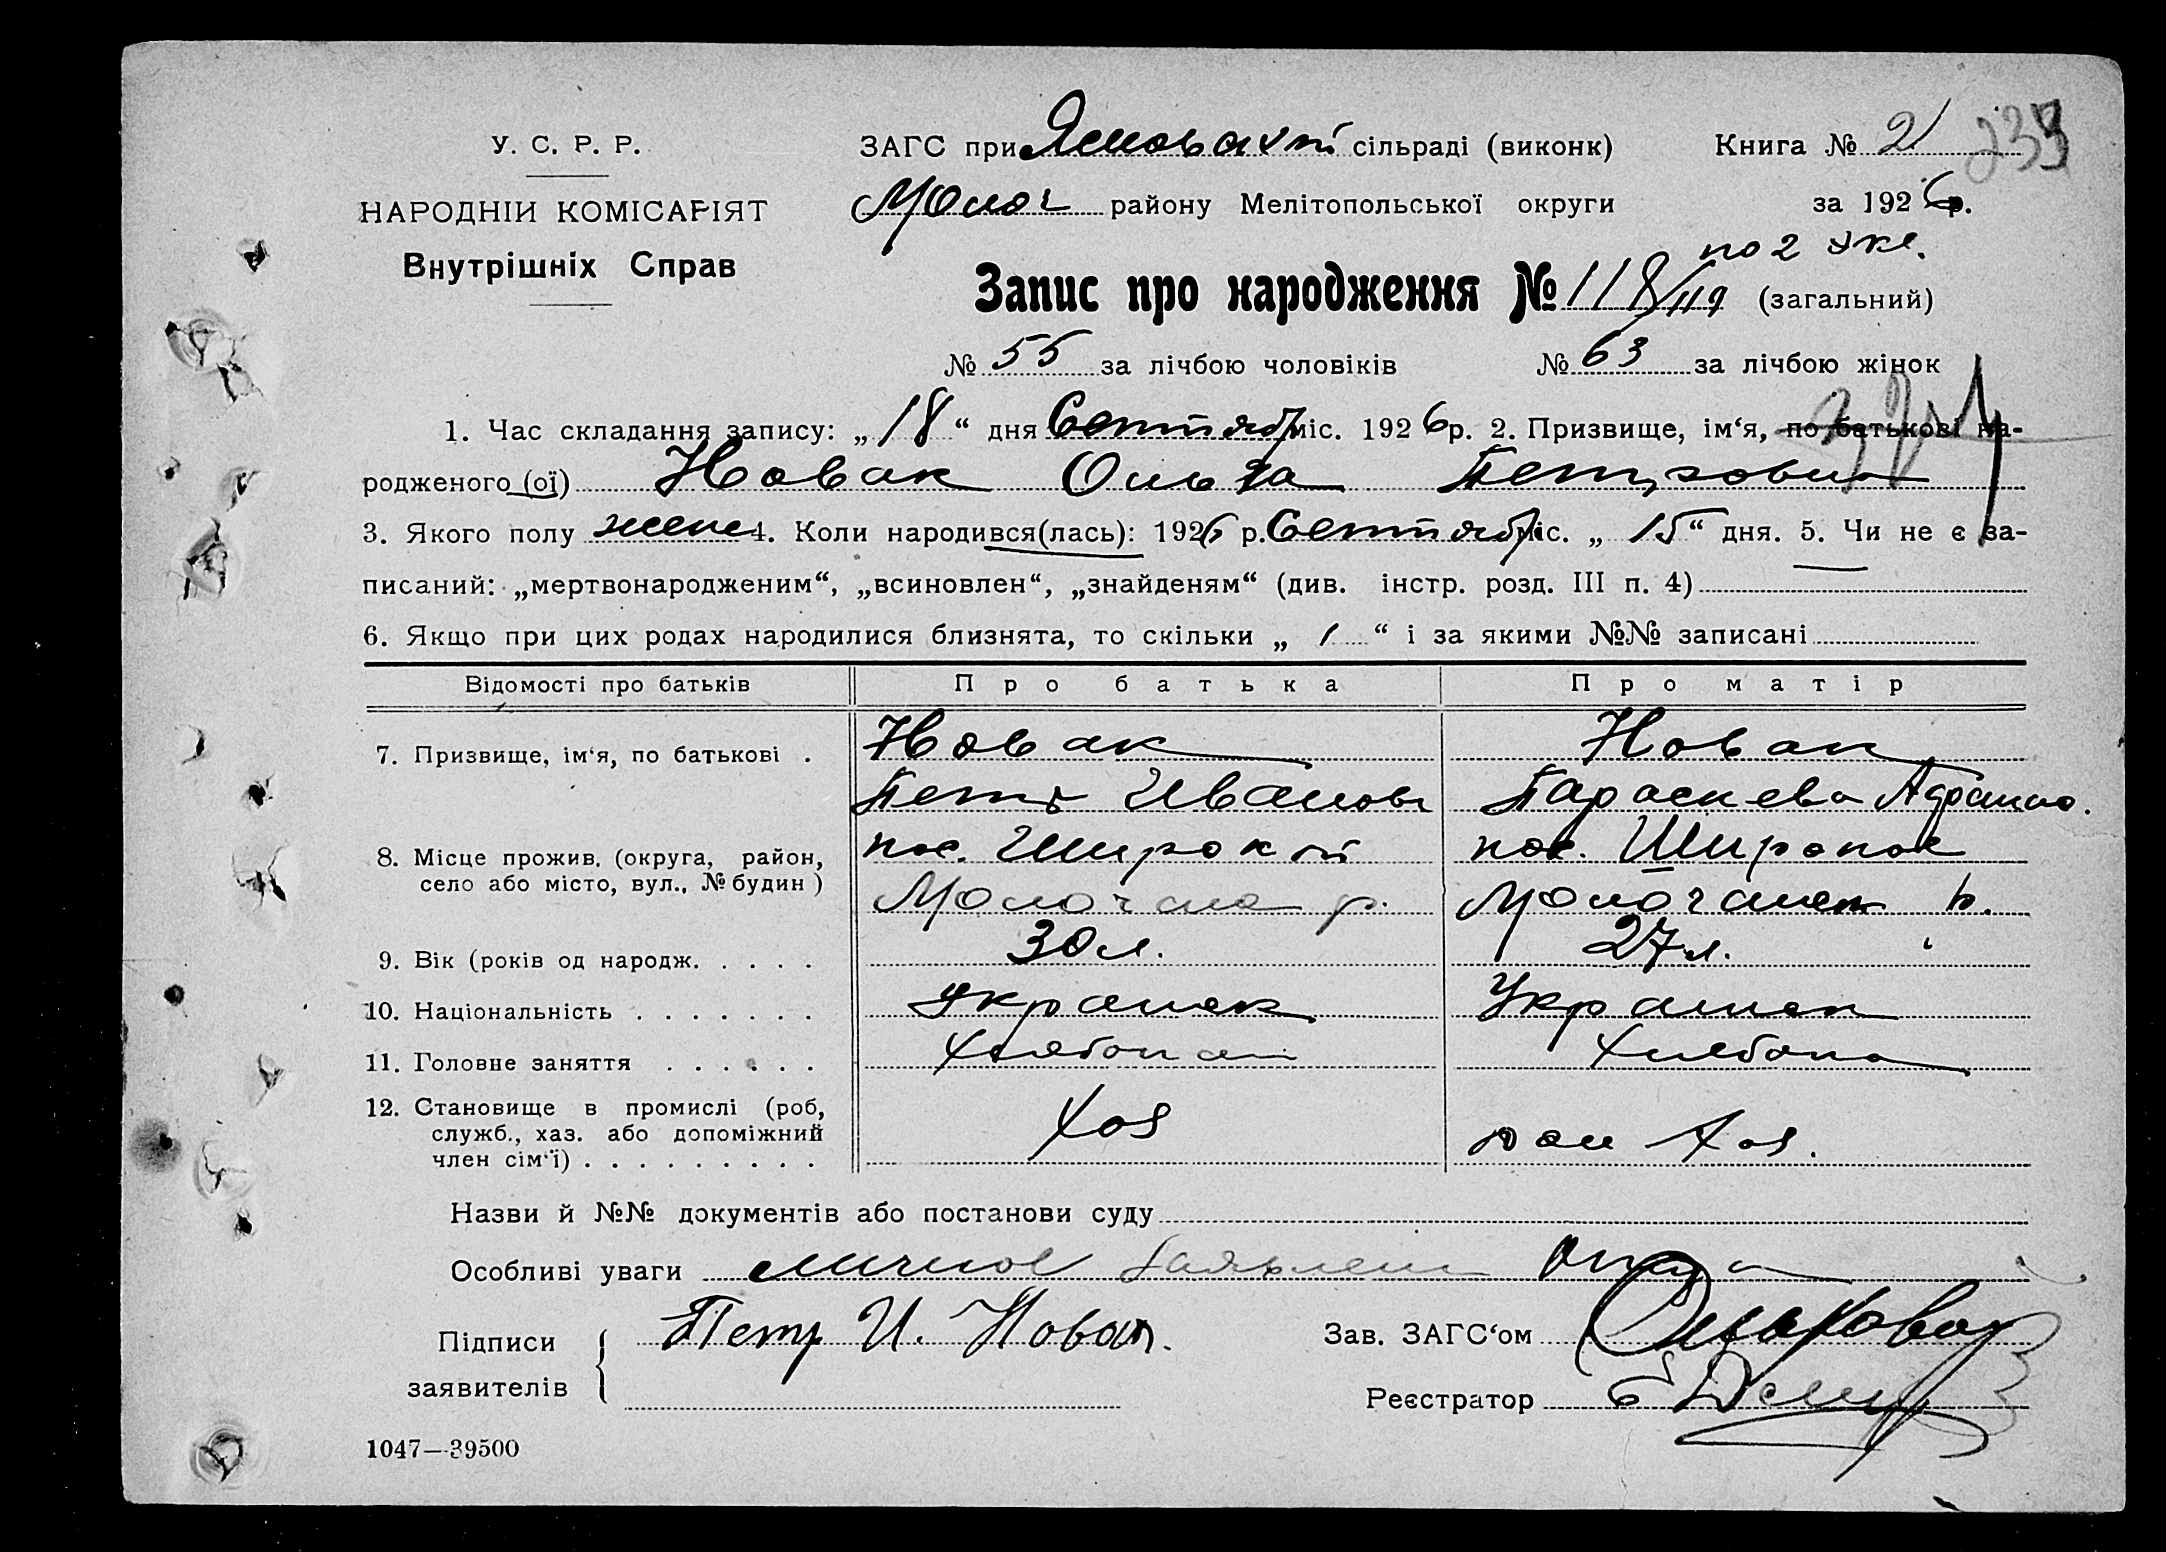 У. С. Р. Р.
НАРОДНІЙ КОМІСАРІЯТ
Внутрішніх Справ
ЗАГС при сільраді (виконк) Книга № 2 233
Молоч району Мелітопольської округи за 1926 р.
по 2 экс.
Запис про народження № 118/119 (загальний)
№ 55 за лічбою чоловіків № 63 за лічбою жінок
1. Час складання запису: „ 18 “ дня Сентябр міс. 1926 р. 2. Призвище, ім‘я, по батькові на-
родженого (ої) Новак Ольга Петровна
3. Якого полу жене 4. Коли народився(лась): 1926 р. Сентябр міс. „ 15 “ дня. 5. Чи не є за-
писаний: „мертвонародженим“, „всиновлен“, „знайденям“ (див. інстр. розд. III п. 4)
6. Якщо при цих родах народилися близнята, то скільки „ 1 “ і за якими №№ записані
Відомості про батьків Про батька Про матір
7. Призвище, ім‘я, по батькові . Новак Новак
Петр Иванов Параскева
8. Місце прожив. (округа, район, пос. Широкий пос. Широкое
село або місто, вул., № будин ) Молочна р. р.
9. Вік (років од народж. . . . . 30 л. 27 л.
10. Національність . . . . . . . Украинек Украинек
11. Головне заняття . . . . . . Хлебопаш Хлебопа
12. Становище в промислі (роб,
служб., хаз. або допоміжний Хоз пом хоз.
член сім‘ї) . . . . . . . . .
Назви й №№ документів або постанови суду
Особливі уваги личное заявлени отца
Підписи Петр И. Новак. Зав. ЗАГС‘ом
заявителів Реєстратор
1047—39500